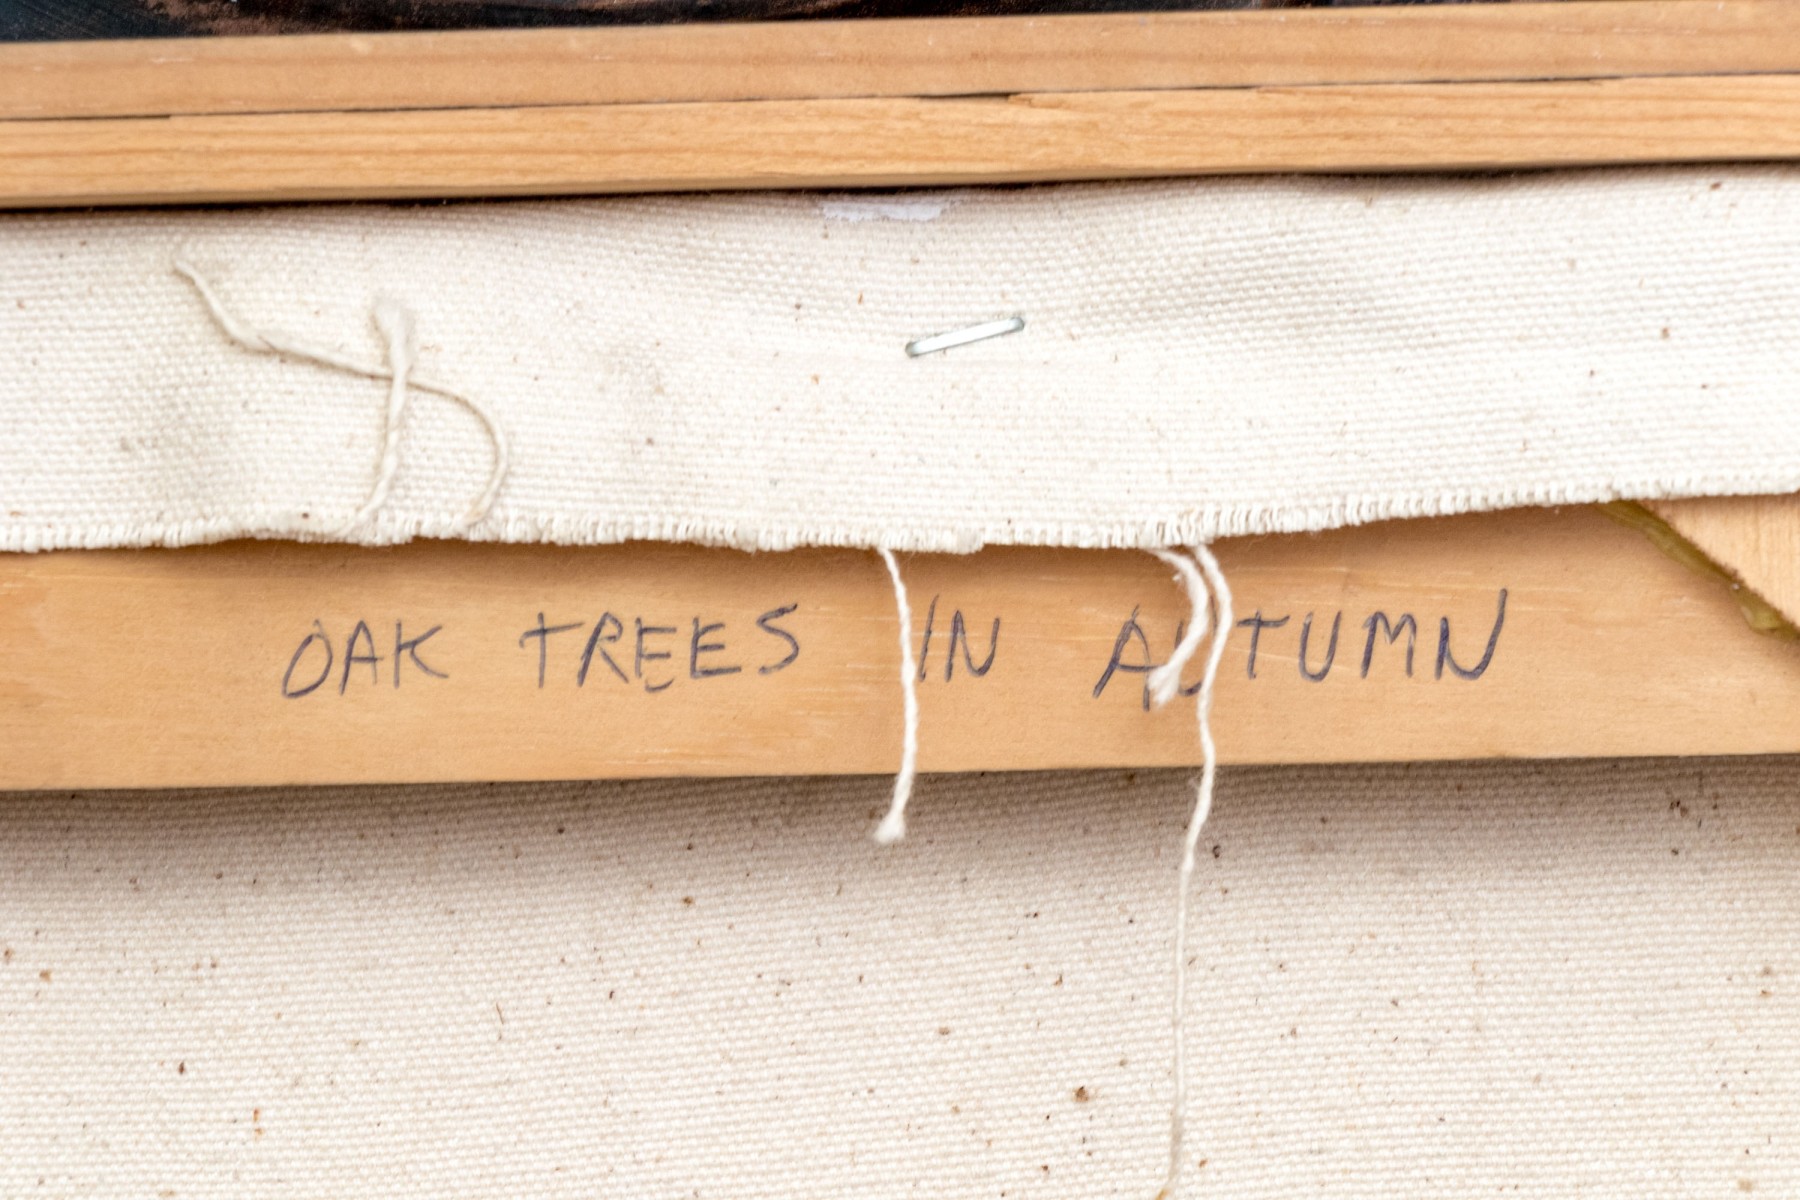 OAK TREES IN AUTUMN